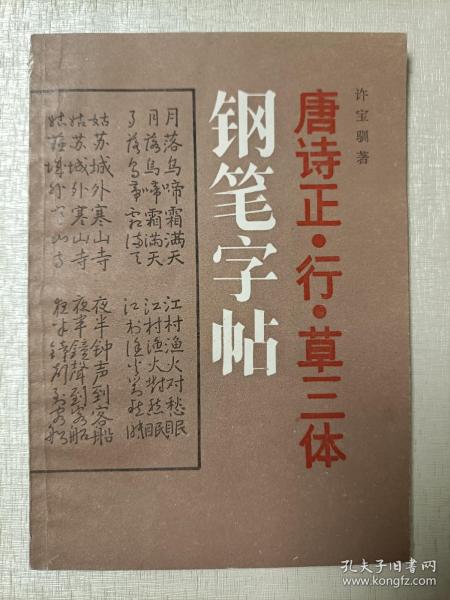 许宝驯著
唐诗正·行·草三体
钢笔字帖
月落乌啼霜满天 江村渔火对愁眠
月落烏啼霜满天 江村渔火對愁眠
月落乌啼霜满天 江村渔火对愁眠
姑苏城外寒山寺 夜半钟声到客船
姑苏城外寒山寺 夜半鐘聲到客船
姑苏城外寒山寺 夜半钟声到客船
孔夫子旧书网
www.kongfz.com